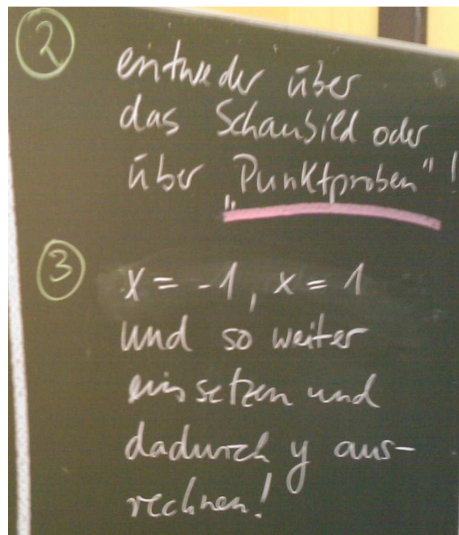 2
entweder über
das Schaubild oder
über „Punktproben"!
3
x = -1, x = 1
und so weiter
einsetzen und
dadurch y aus-
rechnen!